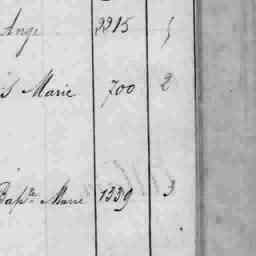 Ange 2215 5
s Marie 700 2
Bapte Marie 1339 3